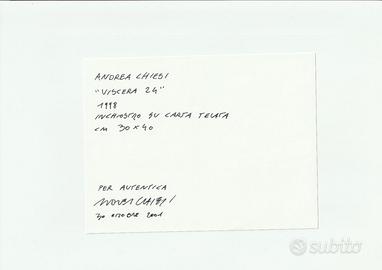 ANDREA CHIESI
"VISCERA 24"
1998
INCHIOSTRO SU CARTA TELATA
CM 30X40
PER AUTENTICA
ANDREA CHIESI
30 OTTOBRE 2001
subito